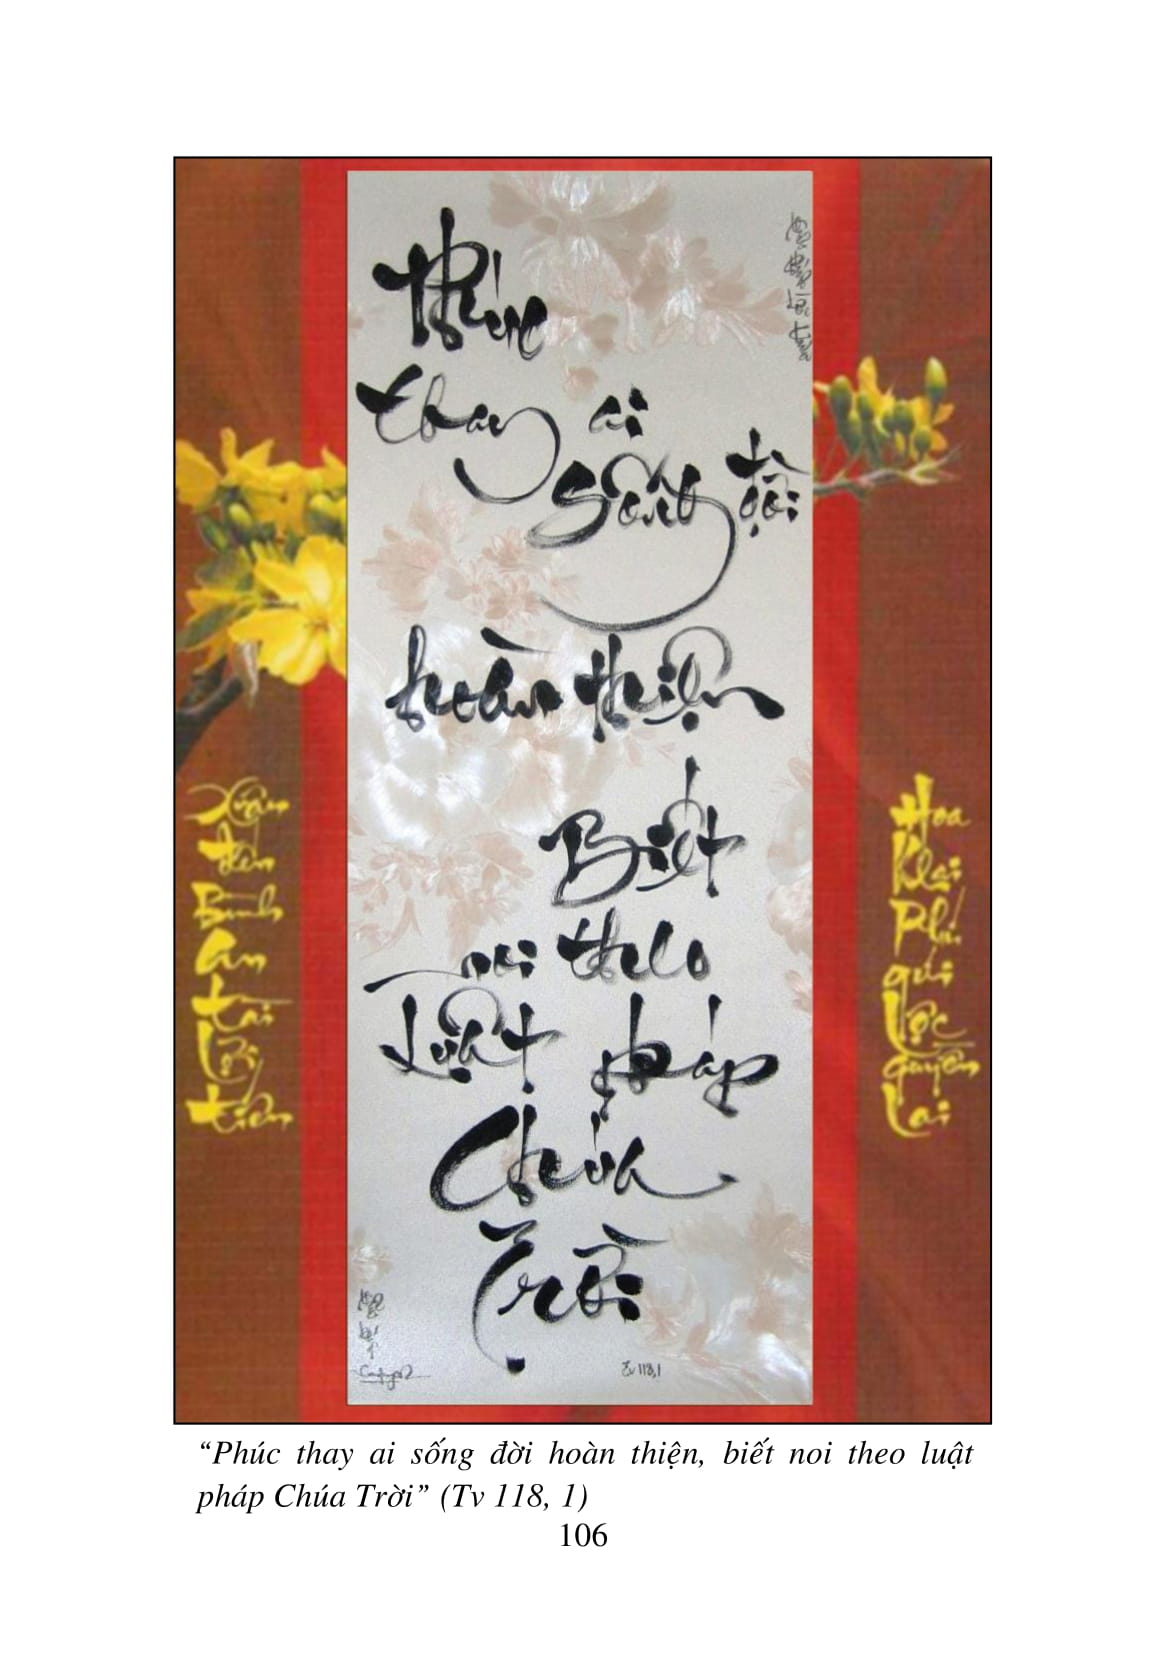 Phúc
thay ai
sống đời
hoàn thiện
Biết
noi theo
luật pháp
Chúa
Trời
Tv 118,1
Xuân
đến
Bình
An
tài
lợi
tiến
Hoa
Khai
Phú
quí
lộc
quyền
lai
“Phúc thay ai sống đời hoàn thiện, biết noi theo luật
pháp Chúa Trời” (Tv 118, 1)
106